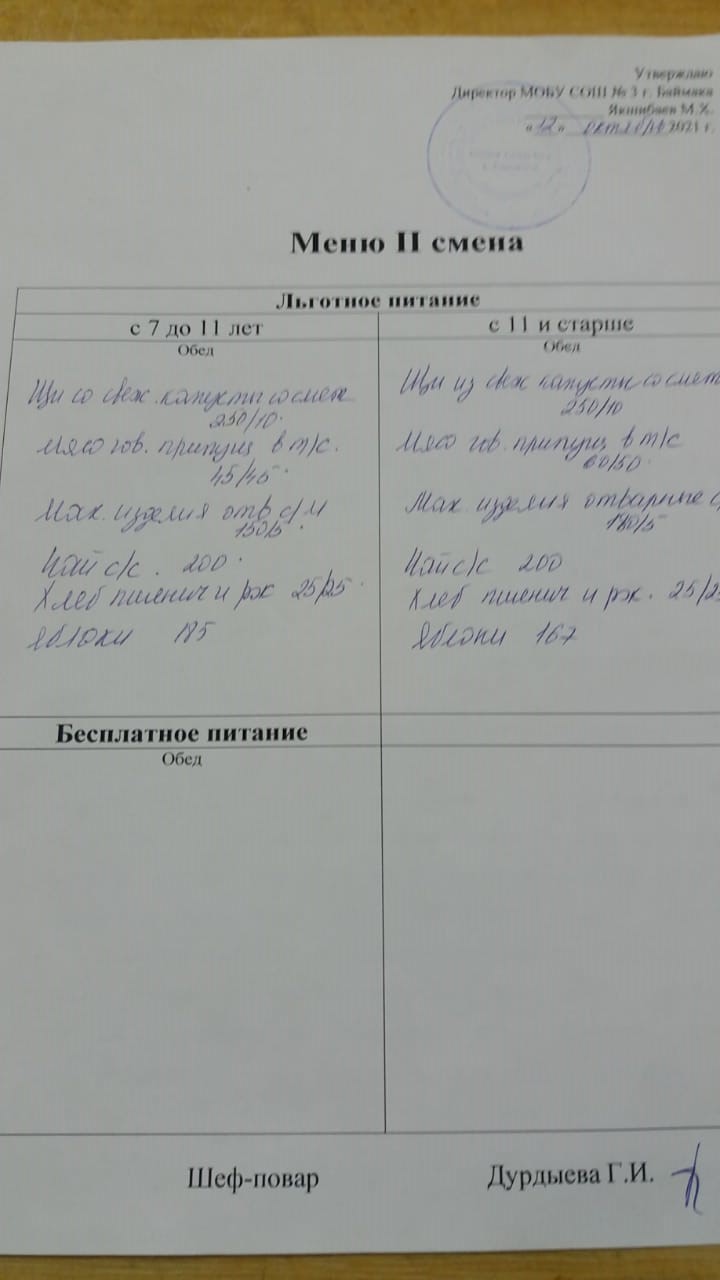 Утверждаю
Директор МОБУ СОШ № 3 г. Баймака
Якшибаев М.Х.
«12» октября 2021 г.
Меню II смена
Льготное питание
с 7 до 11 лет
с 11 и старше
Обед
Обед
Щи со свеж. капусты со смет
250/10
Мясо гов. припущ в т/с.
45/45
Мак. изделия отв с/м
150/5
Чай с/с. 200
Хлеб пшенич и рж 25/25
Яблоки 185
Щи из свеж капусты со смет
250/10
Мясо гов. припущ в т/с
60/50
Мак изделия отварные с/
180/5
Чай с/с 200
Хлеб пшенич и рж. 25/2
Яблоки 167
Бесплатное питание
Обед
Шеф-повар
Дурдыева Г.И.